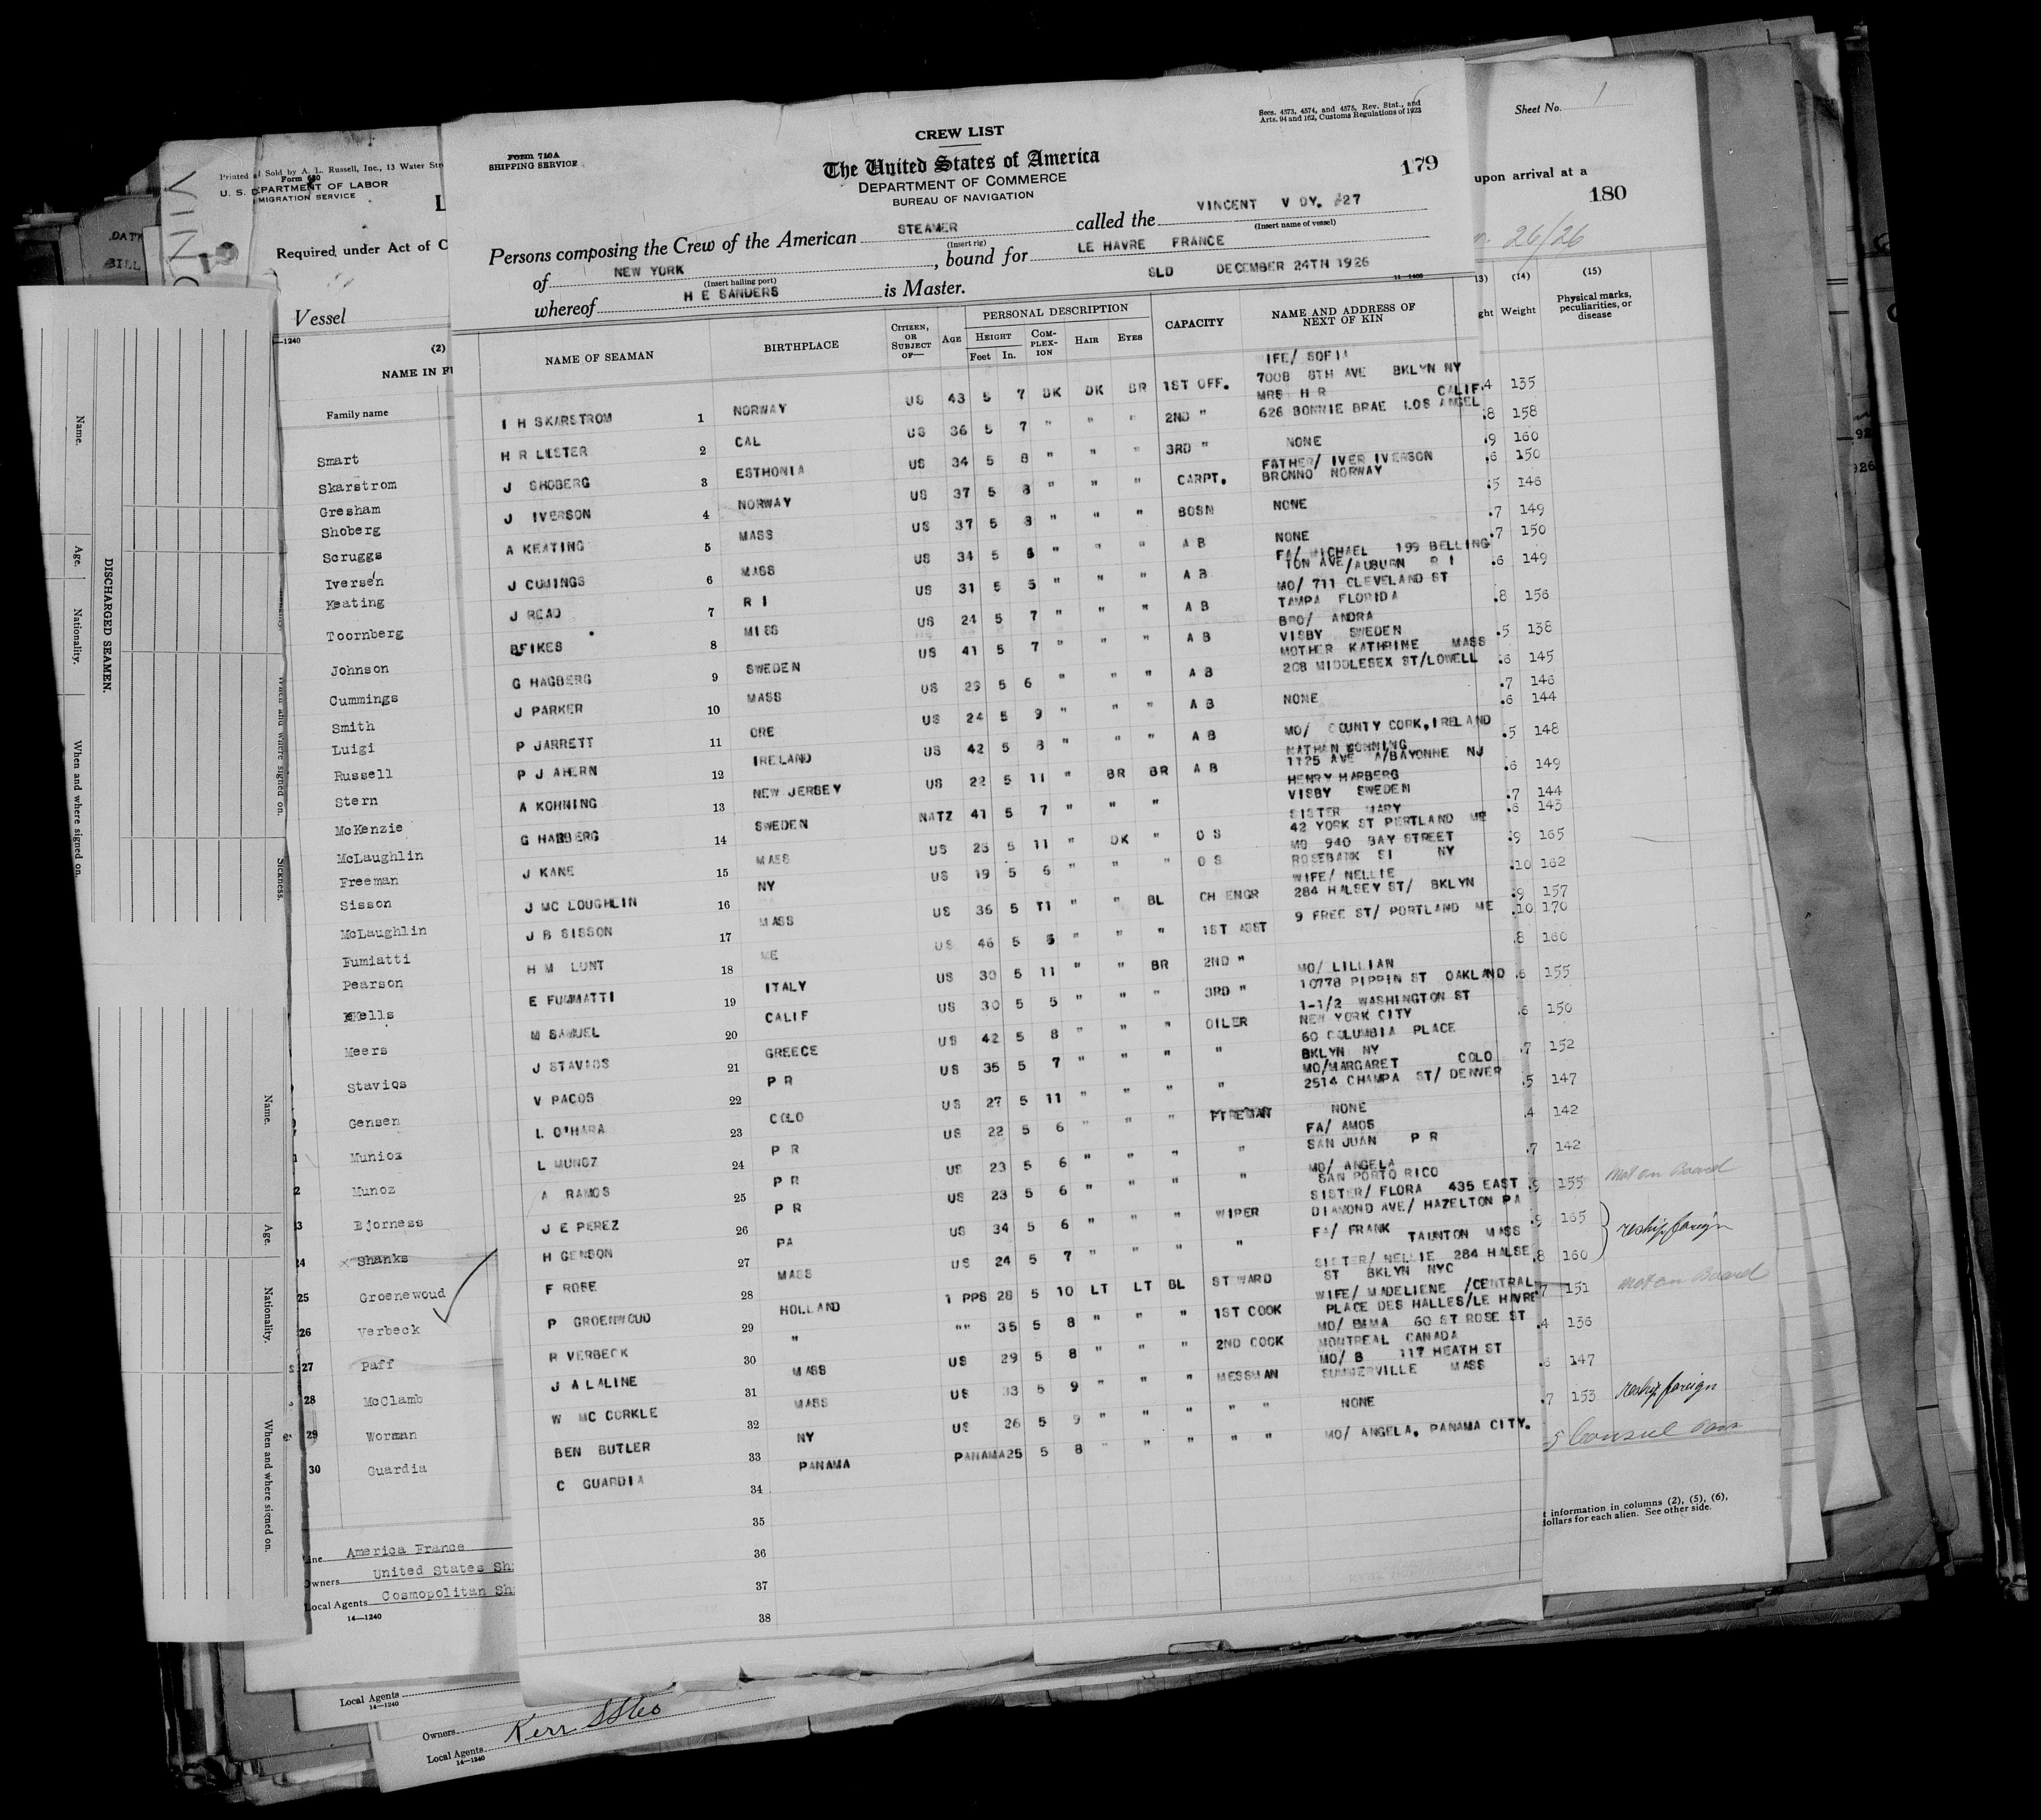 Secs. 4573, 4574, and 4575, Rev. Stat., and
Arts. 94 and 162, Customs Regulations of 1923
Form 710A
SHIPPING SERVICE
CREW LIST
The United States of America
DEPARTMENT OF COMMERCE
BUREAU OF NAVIGATION
179
Persons composing the Crew of the American STEAMER called the VINCENT V OY. #27
(Insert rig) (Insert name of vessel)
of NEW YORK, bound for LE HAVRE FRANCE
(Insert hailing port)
whereof H E SANDERS is Master. SLD DECEMBER 24TH 1926
11—1466
NAME OF SEAMAN BIRTHPLACE CITIZEN, OR SUBJECT OF— AGE PERSONAL DESCRIPTION HEIGHT Feet In. COMPLEXION HAIR EYES CAPACITY NAME AND ADDRESS OF NEXT OF KIN
I H SKARSTROM 1 NORWAY US 43 5 7 DK DK BR 1ST OFF. IFE/ SOFIA 7008 8TH AVE BKLYN NY
H R LESTER 2 CAL US 36 5 7 " " " 2ND " MRS H R CALIF 626 BONNIE BRAE LOS ANGEL
J SHOBERG 3 ESTHONIA US 34 5 8 " " " 3RD " NONE
J IVERSON 4 NORWAY US 37 5 8 " " " CARPT. FATHER/ IVER IVERSON BRONNO NORWAY
A KEATING 5 MASS US 37 5 8 " " " BOSN NONE
J CUMINGS 6 MASS US 34 5 6 " " " A B NONE
J READ 7 R I US 31 5 5 " " " A B FA/ MICHAEL 199 BELLING TON AVE/AUBURN R I
BFIKES 8 MISS US 24 5 7 " " " A B MO/ 711 CLEVELAND ST TAMPA FLORIDA
G HAGBERG 9 SWEDEN US 41 5 7 " " " A B BRO/ ANDRA VISBY SWEDEN
J PARKER 10 MASS US 29 5 6 " " " A B MOTHER KATHRINE MASS 208 MIDDLESEX ST/LOWELL
P JARRETT 11 ORE US 24 5 9 " " " A B NONE
P J AHERN 12 IRELAND US 42 5 8 " " " A B MO/ COUNTY CORK, IRELAND
A KOHNING 13 NEW JERSEY US 22 5 11 " BR BR A B NATHAN 1125 AVE A/BAYONNE NJ
G HARBERG 14 SWEDEN NATZ 41 5 7 " " " HENRY HARBERG VISBY SWEDEN
J KANE 15 MASS US 25 5 11 " DK " O S SISTER MARY 42 YORK ST PERTLAND ME
J MC LOUGHLIN 16 NY US 19 5 6 " " " O S MO 940 BAY STREET ROSEBANK SI NY
J B SISSON 17 MASS US 36 5 11 " " BL CH ENGR WIFE/ NELLIE 284 HALSEY ST/ BKLYN
H M LUNT 18 ME US 46 5 5 " " " 1ST ASST 9 FREE ST/ PORTLAND ME
E FUMMATTI 19 ITALY US 30 5 11 " " BR 2ND "
M SAMUEL 20 CALIF US 30 5 5 " " " 3RD " MO/ LILLIAN 10778 PIPPIN ST OAKLAND
J STAVIOS 21 GREECE US 42 5 8 " " " OILER 1-1/2 WASHINGTON ST NEW YORK CITY
V PACOS 22 P R US 35 5 7 " " " " 60 COLUMBIA PLACE BKLYN NY
L O'HARA 23 COLO US 27 5 11 " " " " MO/MARGARET COLO 2514 CHAMPA ST/ DENVER
L MUNOZ 24 P R US 22 5 6 " " " FIREMAN NONE
A RAMOS 25 P R US 23 5 6 " " " " FA/ AMOS SAN JUAN P R
J E PEREZ 26 P R US 23 5 6 " " " " MO/ ANGELA SAN PORTO RICO
H GENSON 27 PA US 34 5 6 " " " WIPER SISTER/ FLORA 435 EAST DIAMOND AVE/ HAZELTON PA
F ROSE 28 MASS US 24 5 7 " " " " FA/ FRANK TAUNTON MASS
P GROENWOUD 29 HOLLAND 1 PPS 28 5 10 LT LT BL STWARD SISTER/ NELLIE 284 HALSE ST BKLYN NYC
R VERBECK 30 " "" 35 5 8 " " " 1ST COOK WIFE/ MADELIENE /CENTRAL PLACE DES HALLES/LE HAVRE
J A LALINE 31 MASS US 29 5 8 " " " 2ND COOK MO/ EMMA 60 ST ROSE ST MONTREAL CANADA
W MC CORKLE 32 MASS US 33 5 9 " " " MESSMAN MO/ B 117 HEATH ST SUMMERVILLE MASS
BEN BUTLER 33 NY US 26 5 9 " " " " " NONE
C GUARDIA 34 PANAMA PANAMA25 5 8 " " " " " MO/ ANGELA, PANAMA CITY.
35
36
37
38
Printed Sold by A. L. Russell, Inc., 13 Water
Form 680
U. S. DEPARTMENT OF LABOR
IMMIGRATION SERVICE
Required under Act of C
Vessel
1240
(2)
NAME IN
Family name
Smart
Skarstrom
Gresham
Shoberg
Scruggs
Iversen
Keating
Toornberg
Johnson
Cummings
Smith
Luigi
Russell
Stern
McKenzie
McLaughlin
Freeman
Sisson
McLaughlin
Fumiatti
Pearson
Kells
Meers
Stavios
Gensen
Munioz
Munoz
Bjorness
24 Shanks
25 Groenewoud
26 Verbeck
27 Paff
28 McClamb
29 Worman
30 Guardia
Line America France
Owners United States
Local Agents Cosmopolitan
14—1240
Local Agents
14—1240
Owners Kerr SS Co
Local Agents
14—1240
Name.
Age.
Nationality.
When and where signed on.
DISCHARGED SEAMEN.
Sickness.
Name.
Age.
Nationality.
When and where signed on.
Sheet No. 1
upon arrival at a
180
26/26
(13) (14) (15)
Weight Physical marks, peculiarities, or disease
.4 135
.8 158
.9 160
.6 150
.5 146
.7 149
.7 150
.6 149
.8 156
.5 138
.6 145
.7 146
.6 144
.5 148
.6 149
.7 144
.6 143
.9 165
.10 162
.9 157
.10 170
.8 160
.6 155
.6 150
.7 152
.5 147
.4 142
.7 142
.9 155 Not on Board
.9 165 reship foreign
.8 160
.7 151 Not on Board
.4 136
.6 147
.7 153 reship foreign
5 Consul
information in columns (2), (5), (6),
dollars for each alien. See other side.